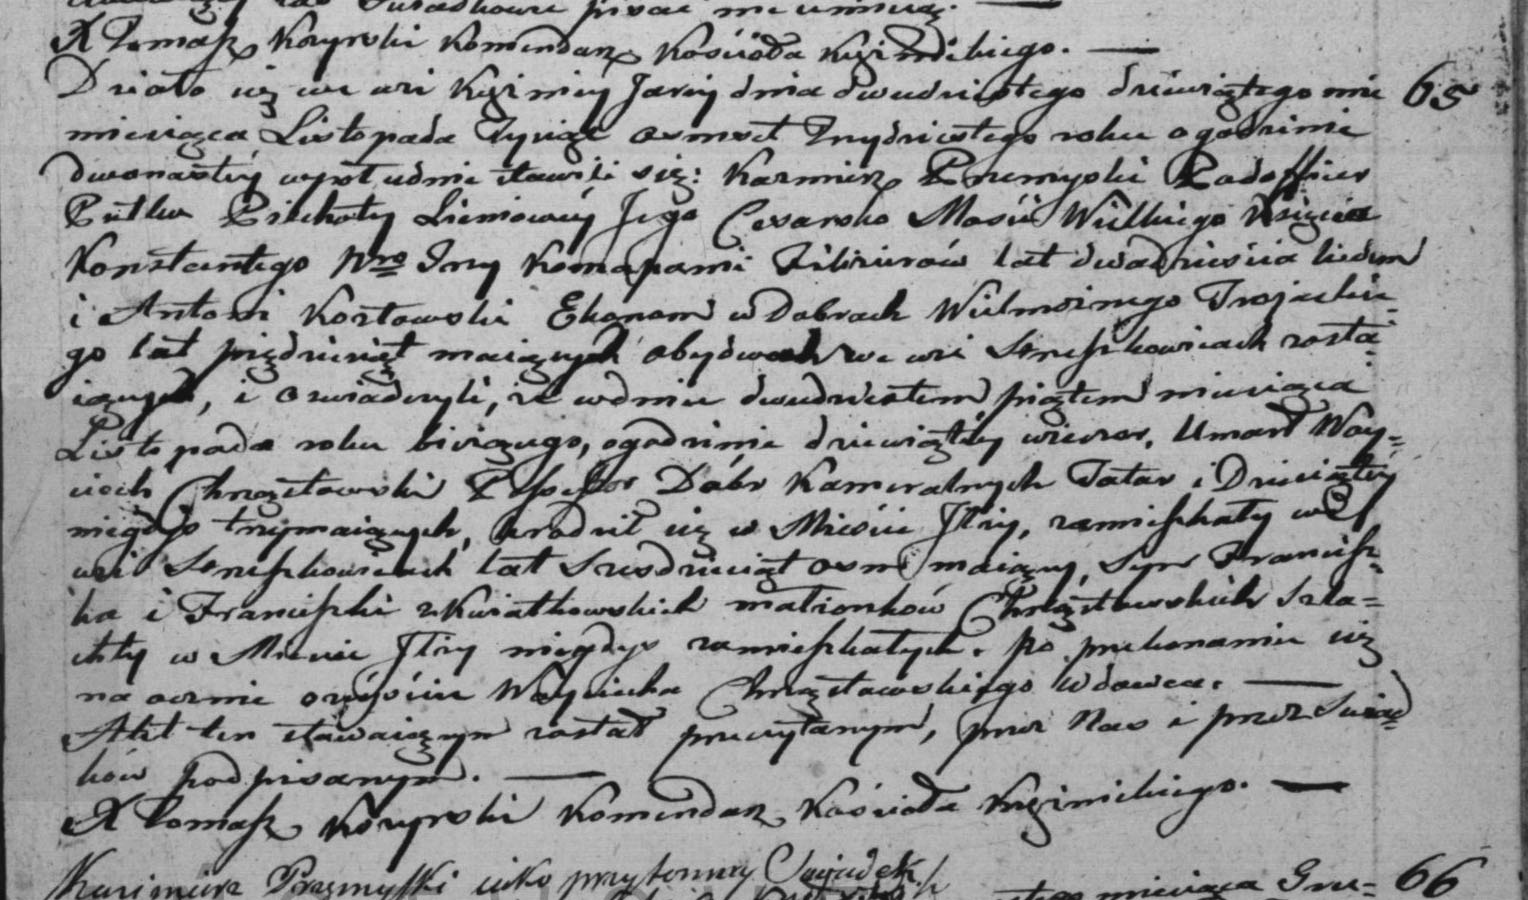 pisać nie umieią.
X Tomasz Kozyrski Komendarz Kościoła Kęzimskiego.
Działo się we wsi Kęzimiey Jarey dnia dwudziestego dziewiątego 65
miesiąca Listopada Tysiąc osmset Trzydziestego roku o godzinie
dwunastey wpołudnie stawili się: Kazmierz Przemyski Podofficer
Pułku Piechoty Liniowey Jego Cesarsko Mości Wielkiego Xsięcia
Konstantego Nro 3ny Kompanii Filizierów lat dwadzieścia siedm
i Antoni Kozłowski Ekonom w Dobrach Wielmoznego Trojeckie-
go lat pięдziesiąt maiących obydwach we wsi Snieszkowicach zosta-
iących, i oswiadczyli, że wdniu dwudziestem piątem miesiąca
Listopada roku bieżącego, ogodzinie dziewiątey wieczor, Umarł Woy-
ciech Chrząstowski Possessor Dóbr Kameralnych Tatar i Dziesiątey
niegdys trzymaiących, urodził się w Mieście Iłży, zamieszkały we
wsi Snieszkowicach lat Szesdziesiąt osm maiący, Syn Francisz-
ka i Franciszki z Kwiatkowskich małzonków Chrząstowskich Szla-
chty w Miescie Iłży niegdys zamieszkałych. Po przekonaniu się
na ocznie o zeyściu Woyciecha Chrząstowskiego Wdowca.
Akt ten stawaiącym został przeczytanym, przez Nas i przez Swiad-
ków podpisanym.
X Tomasz Kozyrski Komendarz Kościoła Kęzimskiego.
Kazimierz Przemyski iako przytomny Swiadek
miesiąca Gru- 66